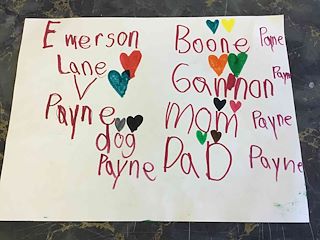 Emerson
Lane
V
Payne
dog
Payne
Boone Payne
Gannon Payne
mom Payne
DaD Payne